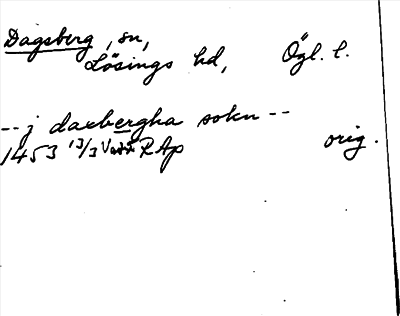 Dagsberg, sn,
Lösings hd, Ögl. l.
-- j daxbergha sokn --
1453 13/3 RAp orig.